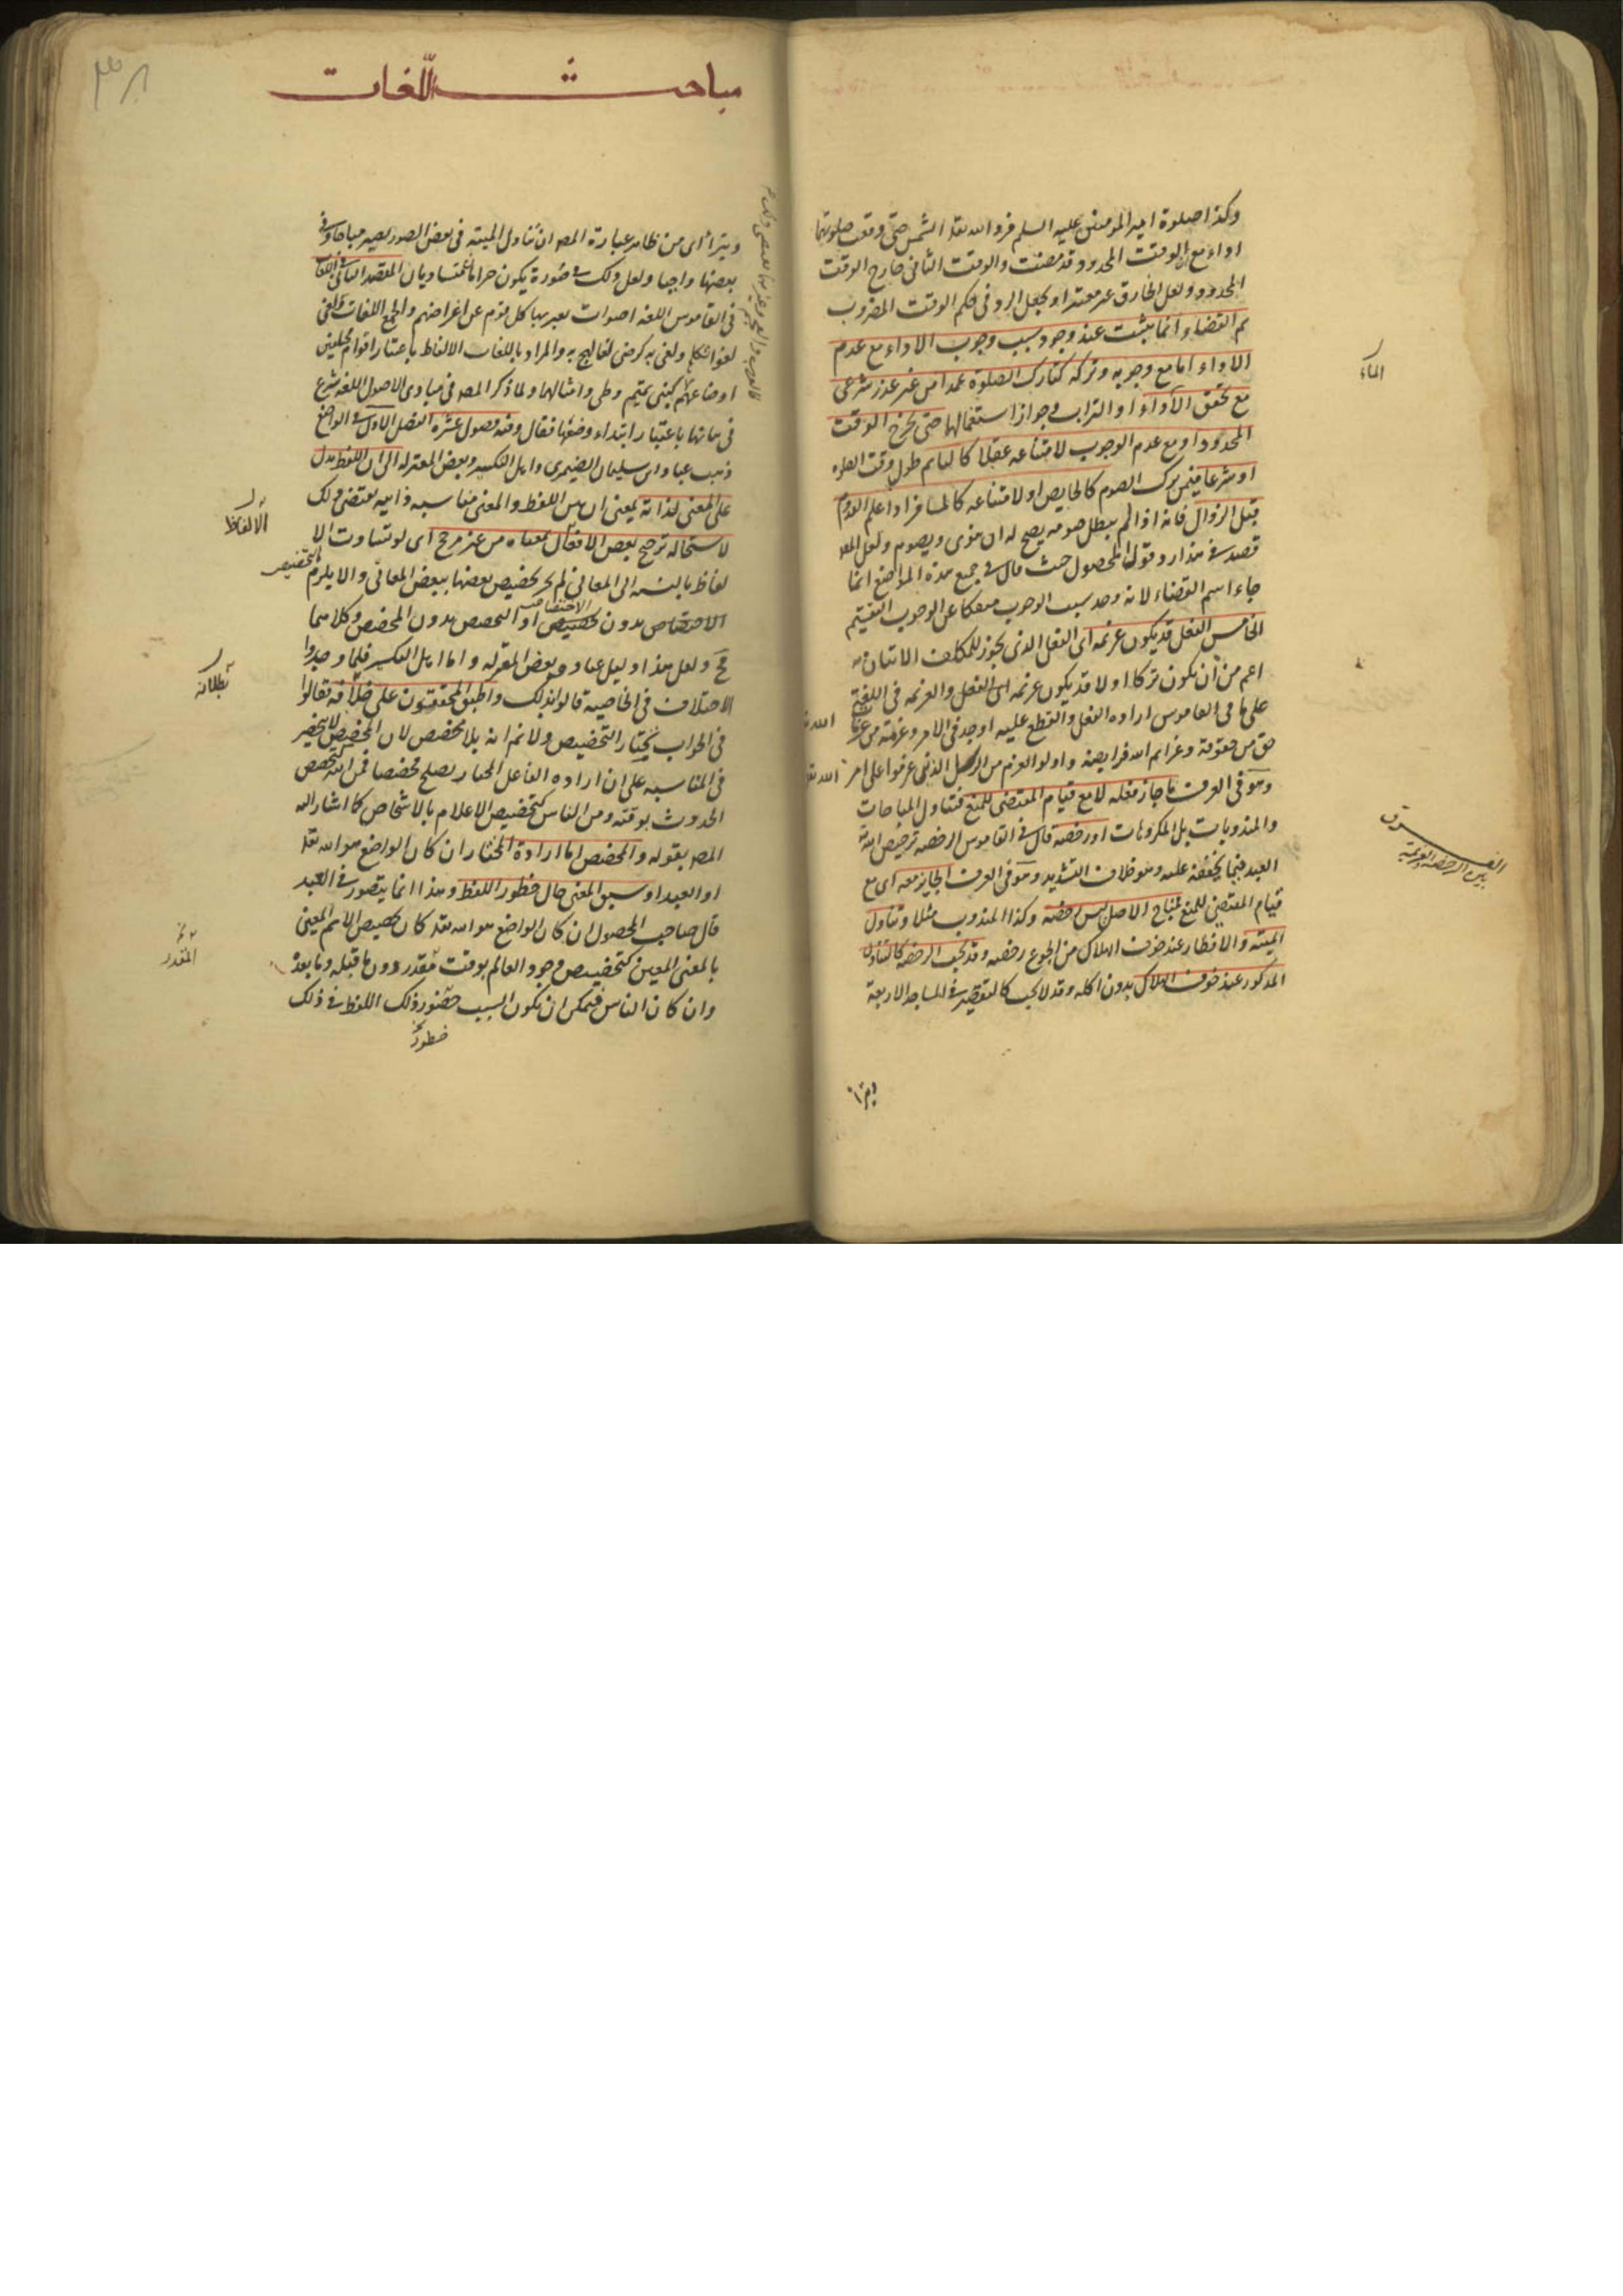 وكذا صلوة امير المومنين عليه السلم فرد الله تعالى الشمس حتى وقعت صلوتهما
اداء مع ان الوقت المحدود قد مضت والوقت الثاني خارج الوقت
المحدود ولعل الخارق غير معتبر او يجعل الرد في حكم الوقت المضروب
ثم القضاء وانما يثبت عند وجود سبب وجوب الاداء مع عدم
الاداء اما مع وجوبه وتركه كتارك الصلوة عمدا من غير عذر شرعي
الماء
مع تحقق الاداء او التراب وجواز استعمالها حتى يخرج الوقت
المحدود او مع عدم الوجوب لامتناعه عقلا كالنايم طول وقت الصلوه
او شرعا فيمن ترك الصوم كالحايض او لا متناعه كالمسافر اذا علم القدوم
قبل الزوال فانه اذا لم يبطل صومه يصح له ان ينوى ويصوم ولعل المصه
قصد في هذا رد قول المحصول حيث قال في جميع هذه المواضع انما
جاء اسم القضاء لانه وجد سبب الوجوب منفكا عن الوجوب التقسيم
الخامس الفعل قد يكون عزيمه اى الفعل الذى يجوز للمكلف الاتيان به
اعم من ان يكون تركا او لا قد يكون عزيمه اى الفعل والعزيمه في اللغة
على ما في القاموس اراده الفعل والقطع عليه او جد في الامر وعزمة من عزمات الله
حق من حقوقه وعزايم الله فرايضه واولو العزم من الرسل الذين عزموا على امر الله
وهو في العرف ما جاز فعله لا مع قيام المقتضى للمنع فتناول المباحات
والمندوبات بل المكروهات او رخصه قال في القاموس الرخصه ترخيص الله
الفرق بين الرخصة والعزيمة
العبد فيما يخففه عليه وهو خلاف التشديد وهو في العرف الجايز معه اى مع
قيام المقتضى للمنع فمباح الاصل ليس رخصه وكذا المندوب مثلا وتناول
الميته والافطار عند خوف الهلاك من الجوع رخصه وقد تجب الرخصه كالتناول
المذكور عند خوف الهلاك بدون اكله وقد لا تجب كالتقصير في المساجد الاربعة
مباحث اللّغات
ويترآى من ظاهر عبارة المصه ان تناول الميته في بعض الصور يصير مباحا وفي
بعضها واجبا ولعل ذلك في صورة يكون حراما المقصد الثاني في اللغات
في القاموس اللغه اصوات يعبر بها كل قوم عن اغراضهم والجمع اللغات
لغوا تكلم ولغى به كرضى لغا لهج به والمراد باللغات الالفاظ باعتبار اقوام مختلفين
اوضاعهم كبنى تميم وطى وامثالهما ولما ذكر المصه في مبادى الاصول اللغه شرع
في بيانها باعتبار ابتداء وضعها فقال وفيه فصول عشرة الفصل الاول في الواضع
ذهب عباد بن سليمان الضيمرى واهل التكسير وبعض المعتزله الى ان اللفظ يدل
على المعنى لذاته بمعنى ان بين اللفظ والمعنى مناسبه ذاتيه يقتضى ذلك
الالفاظ
لاستحاله ترجيح بعض الافعال بمعناه من غير مرجح اى لو تساوت الا
لفاظ بالنسبه الى المعانى لم يجز تخصيص بعضها ببعض المعانى والا يلزم
التخصيص
الاختصاص بدون تخصيص او التخصيص بدون المخصص وكلاهما
مح ولعل هذا دليل عباد وبعض المعتزله واما اهل التكسير فلما وجدوا
الاختلاف في الخاصيه قالوا بذلك واطبق المحققون على خلافه فقالوا
بطلانه
في الجواب نختار التخصيص ولا نم انه بلا مخصص لان المخصص لا ينحصر
في المناسبه على ان اراده الفاعل المختار يصلح مخصصا فمن الله كتخصيص
الحدوث بوقته ومن الناس كتخصيص الاعلام بالاشخاص كما اشار اليه
المصه بقوله والمخصص اما ارادة المختار ان كان الواضع هو الله تعالى
او العبد او سبق المعنى حال خطور اللفظ وهذا انما يتصور في العبد
قال صاحب المحصول ان كان الواضع هو الله تعالى كان تخصيص الاسم المعين
بالمعنى المعين كتخصيص وجود العالم بوقت مقدر دون ما قبله وما بعده
المقدر
وان كان الناس فيمكن ان يكون السبب حضور ذلك اللفظ في ذلك
خطور